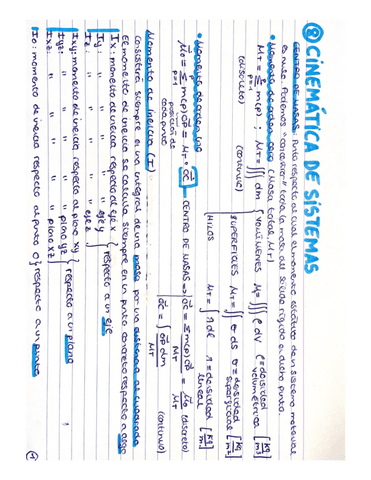 ⑧ CINEMÁTICA DE SISTEMAS
CENTRO DE MASAS: Punto respecto al cual el momento estático de un sistema material
es nulo. Podemos "concentrar" toda la masa del sólido rígido en dicho punto.
• Momento de orden cero (Masa total, M_T)
M_T = Σ m(p) ; M_T = ∭ dm
p=1
(discreto) (continuo)
VOLÚMENES M_T = ∭ ρ dV ρ = densidad volumétrica [kg/m³]
SUPERFICIES M_T = ∬ σ dS σ = densidad superficial [kg/m²]
HILOS M_T = ∫ λ dl λ = densidad lineal [kg/m]
• Momento de orden uno
M_0 = Σ m(p) OP = M_T · OC → CENTRO DE MASAS ⇒ OC = Σ m(p) OP / M_T = M_0 / M_T (discreto)
p=1
posición de
cada punto
OC = ∫ OP dm / M_T (continuo)
Momento de inercia (I)
Consistirá siempre en una integral de una masa por una distancia al cuadrado
El momento de inercia se calcula siempre en un punto concreto respecto a algo
Ix: momento de inercia respecto al eje x
Iy: " " " " eje y
Iz: " " " " eje z
respecto a un eje
Ixy: momento de inercia respecto al plano xy
Iyz: " " " " plano yz
Ixz: " " " " plano xz
respecto a un plano
Io: momento de inercia respecto al punto O } respecto a un punto
1